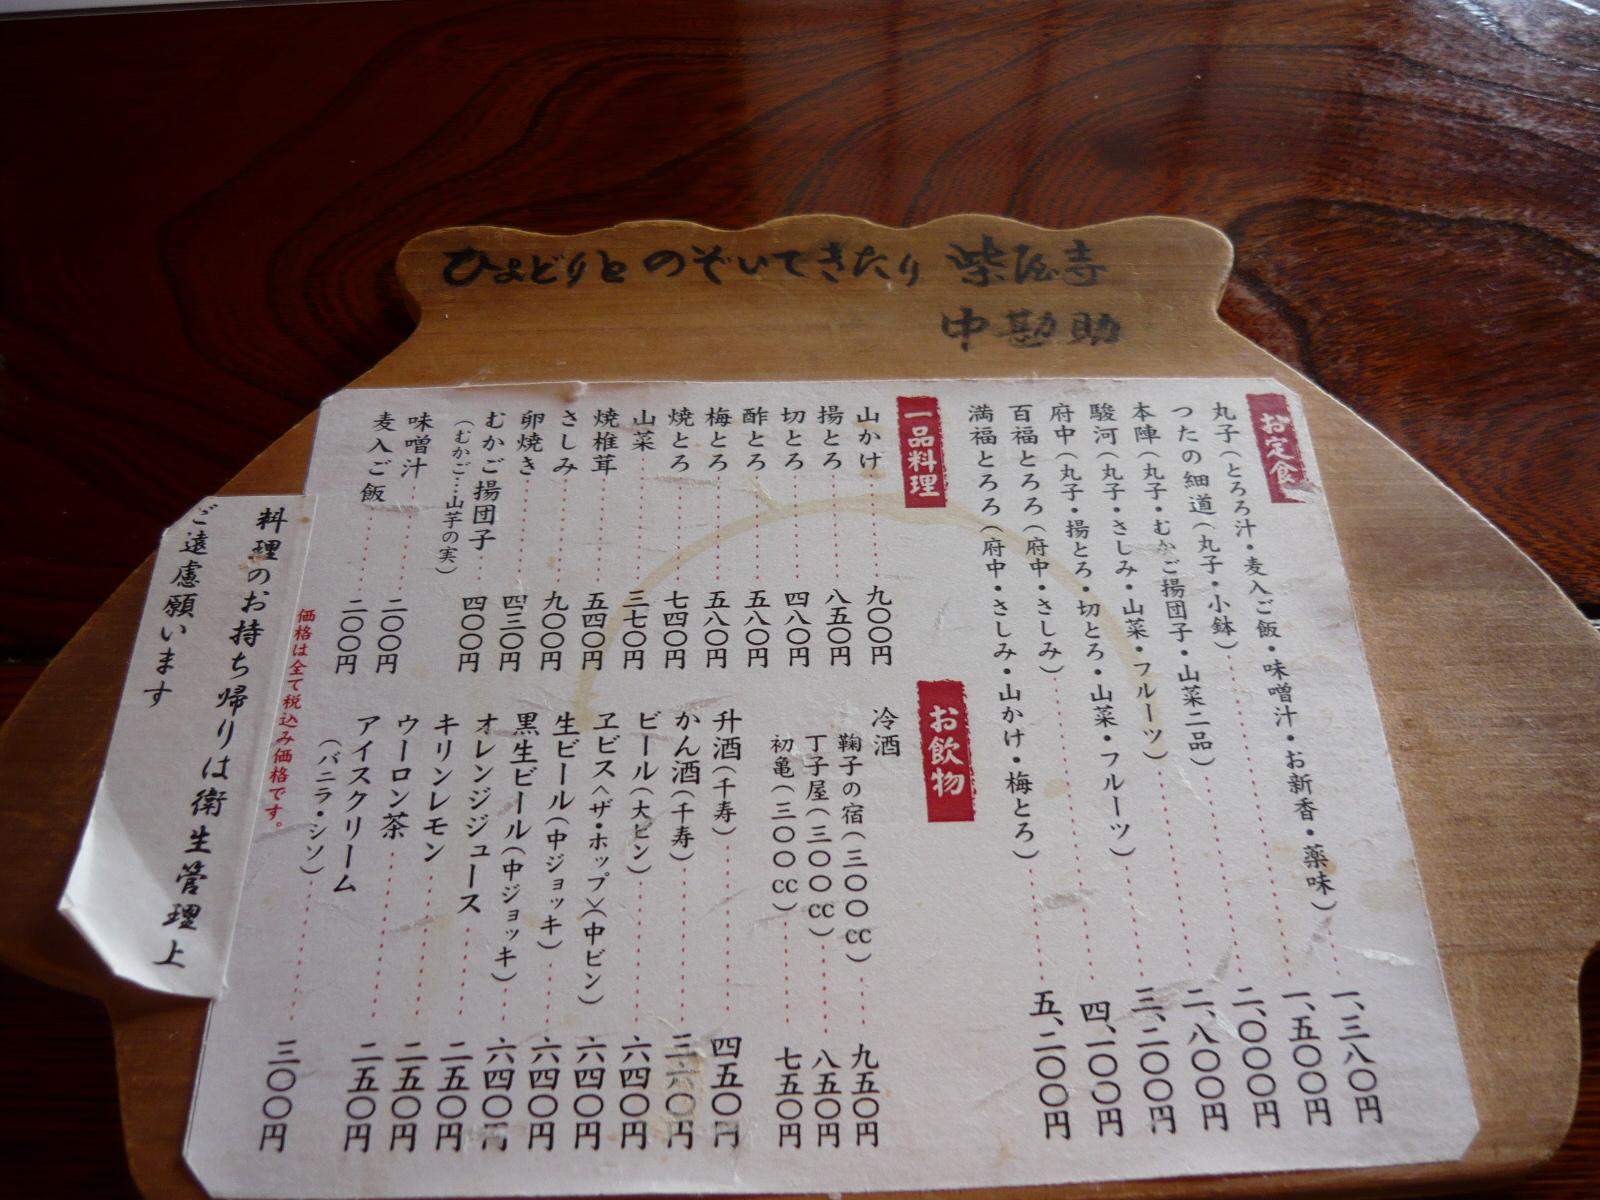 ひよどりとのぞいてきたり柴屋寺
中勘助
お定食
丸子(とろろ汁・麦入ご飯・味噌汁・お新香・薬味) 一、三八〇円
つたの細道(丸子・小鉢) 一、五〇〇円
本陣(丸子・むかご揚団子・山菜二品) 二、〇〇〇円
駿河(丸子・さしみ・山菜・フルーツ) 二、八〇〇円
府中(丸子・揚とろ・切とろ・山菜・フルーツ) 三、二〇〇円
百福とろろ(府中・さしみ) 四、一〇〇円
満福とろろ(府中・さしみ・山かけ・梅とろ) 五、二〇〇円
一品料理
山かけ 九〇〇円
揚とろ 八五〇円
切とろ 四八〇円
酢とろ 五八〇円
梅とろ 五八〇円
焼とろ 七四〇円
山菜 三七〇円
焼椎茸 五四〇円
さしみ 九〇〇円
卵焼き 四三〇円
むかご揚団子 四〇〇円
(むかご…山芋の実)
味噌汁 二〇〇円
麦入ご飯 二〇〇円
お飲物
冷酒
鞠子の宿(三〇〇cc) 九五〇円
丁子屋(三〇〇cc) 八五〇円
初亀(三〇〇cc) 七五〇円
升酒(千寿) 四五〇円
かん酒(千寿) 三六〇円
ビール(大ビン) 六四〇円
ヱビス<ザ・ホップ>(中ビン) 六四〇円
生ビール(中ジョッキ) 六四〇円
黒生ビール(中ジョッキ) 六四〇円
オレンジジュース 二五〇円
キリンレモン 二五〇円
ウーロン茶 二五〇円
アイスクリーム
(バニラ・シソ) 三〇〇円
価格は全て税込み価格です。
料理のお持ち帰りは衛生管理上
ご遠慮願います